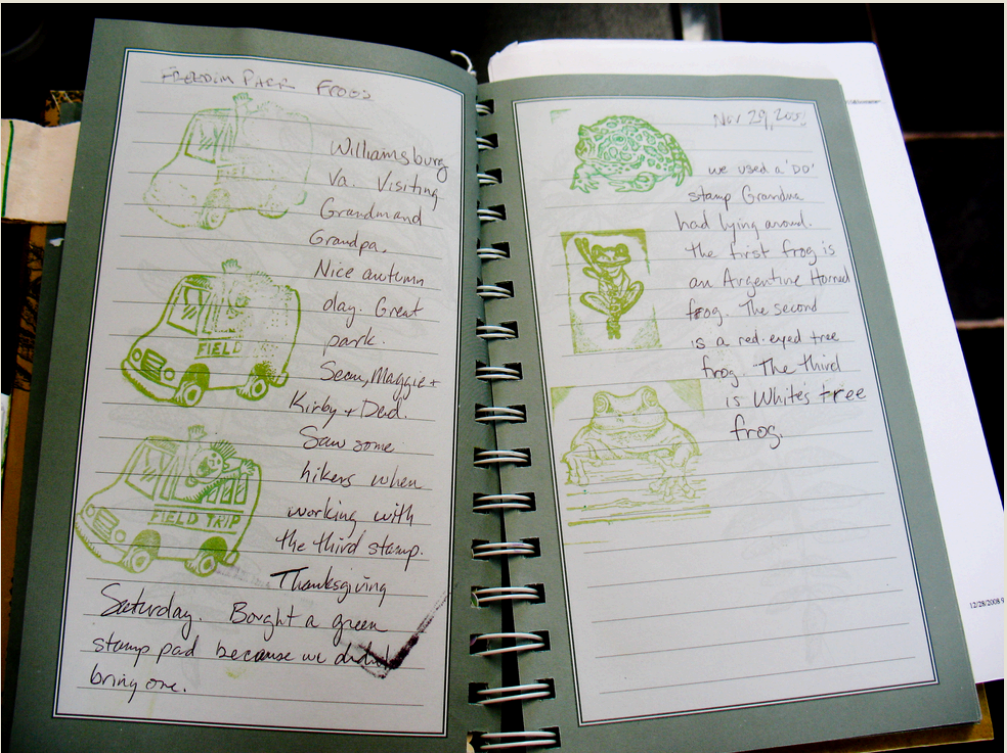 FREEDIM PARK FROGS
Williamsburg
Va. Visiting
Grandmand
Grandpa.
Nice autumn
day. Great
park.
Sean, Maggie +
Kirby + Dad.
Saw some
hikers when
working with
the third stamp.
Thanksgiving
Saturday. Bought a green
stamp pad because we didn't
bring one.
FIELD
FIELD
FIELD TRIP
Nov 29,
we used a 'DO'
stamp Grandma
had lying around.
The first frog is
an Argentine Horned
frog. The second
is a red-eyed tree
frog. The third
is White's tree
frog.
12/28/2008 9